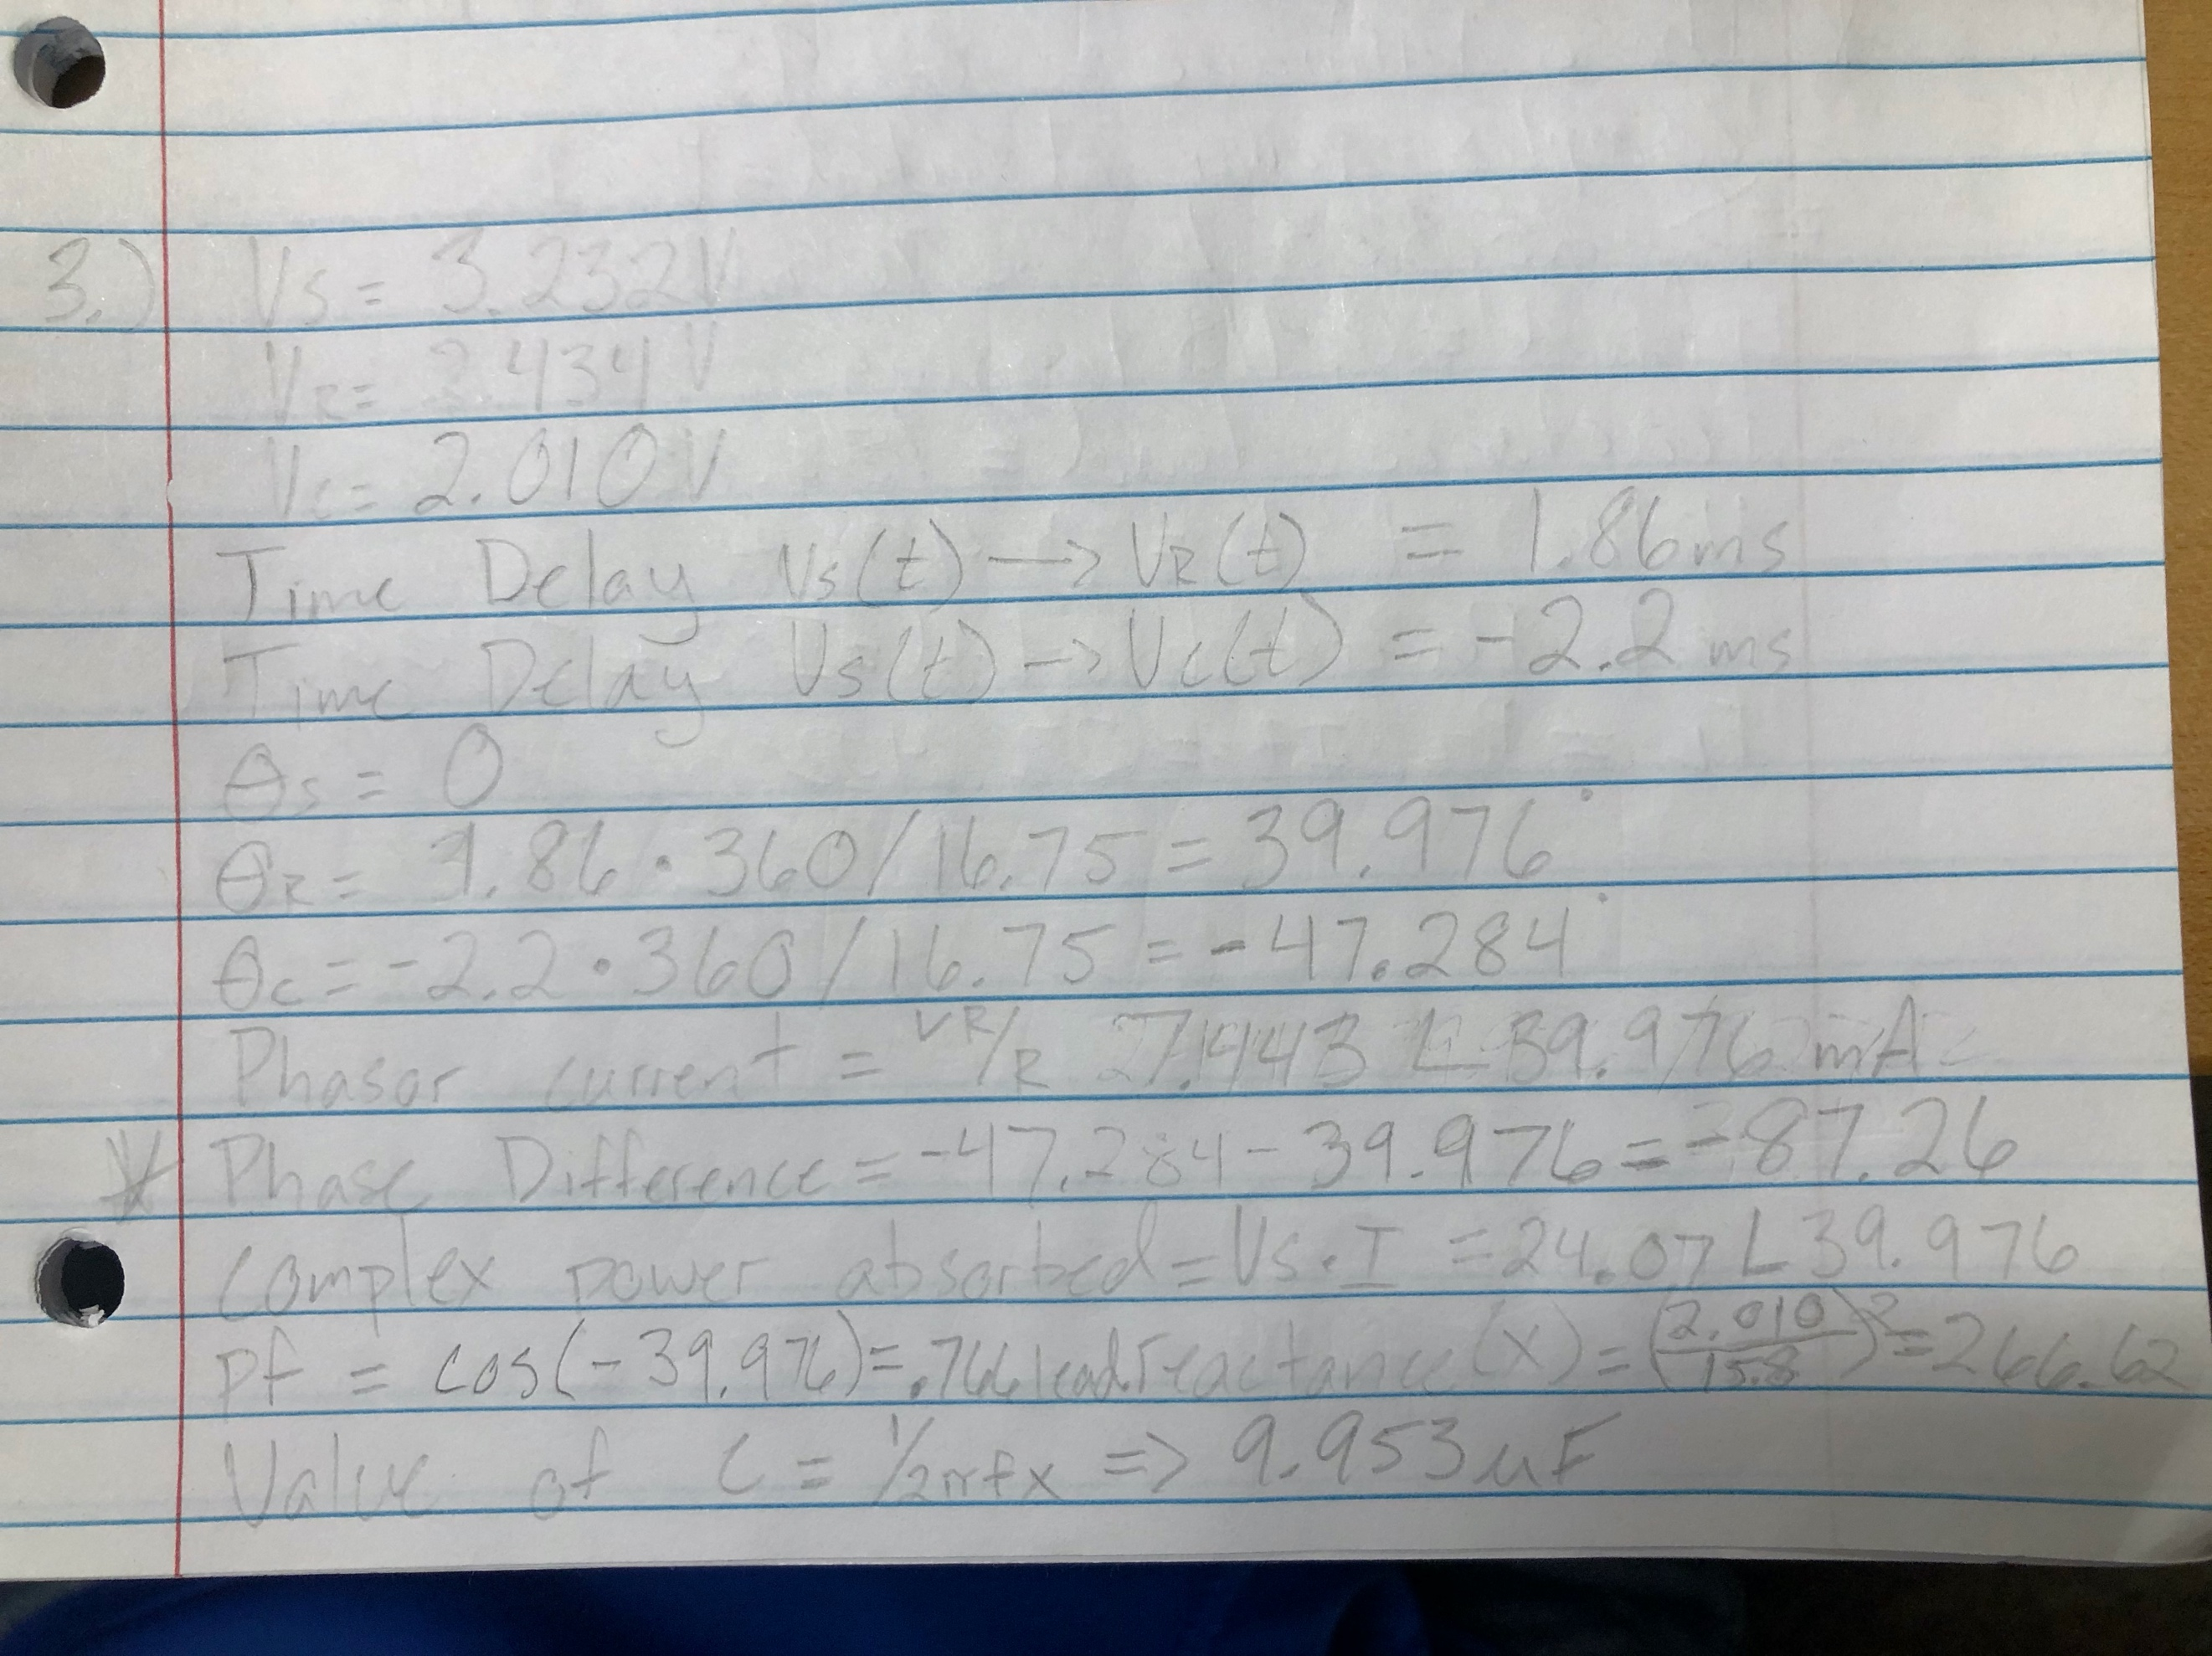 3.) Vs = 3.232V
VR = 2.434 V
Vc = 2.010 V
Time Delay Vs(t) → VR(t) = 1.86ms
Time Delay Vs(t) → Vc(t) = -2.2 ms
θs = 0
θR = 1.86 · 360 / 16.75 = 39.976°
θc = -2.2 · 360 / 16.75 = -47.284°
Phasor current = VR/R 7.443 ∠ 39.976 mA
* Phase Difference = -47.284 - 39.976 = -87.26
Complex power absorbed = Vs · I = 24.07 ∠ 39.976
pf = cos(-39.976) = .766 lead. reactance (x) = (2.010/15.8)² = 266.62
Value of C = 1/2πfx => 9.953uF